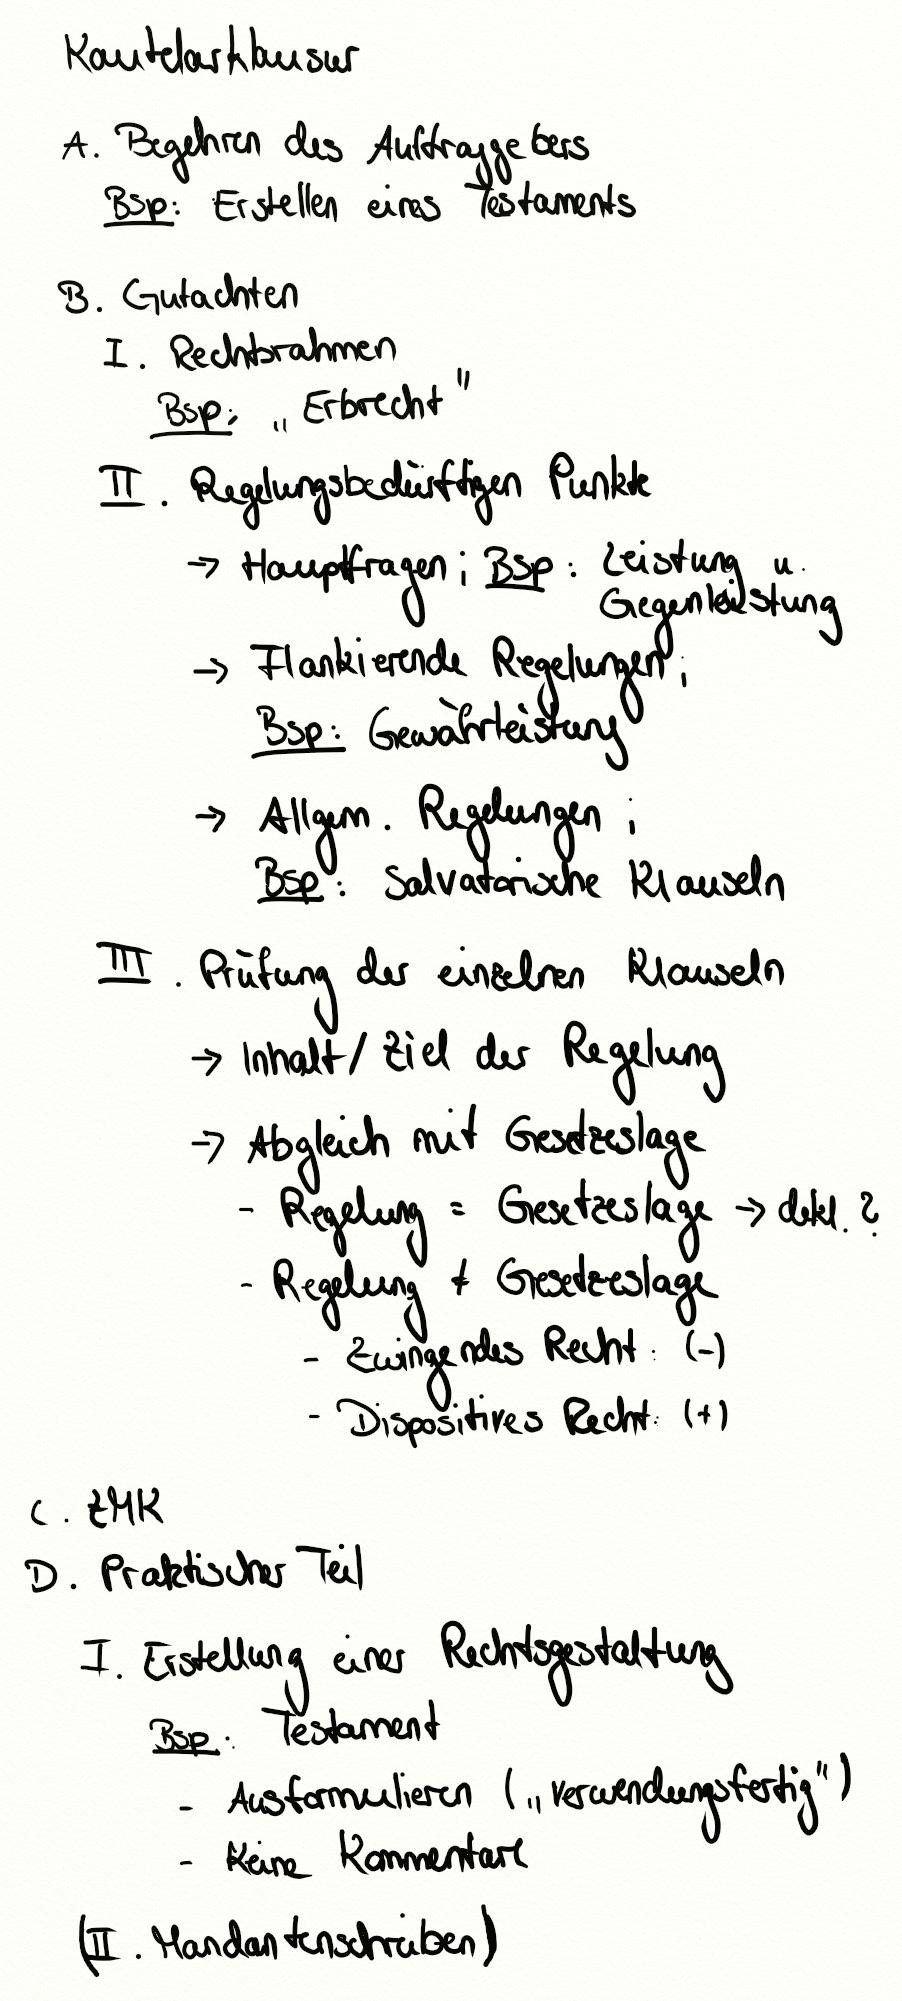 Kautelarklausur
A. Begehren des Auftraggebers
Bsp: Erstellen eines Testaments
B. Gutachten
I. Rechtsrahmen
Bsp: „Erbrecht"
II. Regelungsbedürftigen Punkte
→ Hauptfragen; Bsp: Leistung u.
Gegenleistung
→ Flankierende Regelungen;
Bsp: Gewährleistung
→ Allgem. Regelungen;
Bsp: Salvatorische Klauseln
III. Prüfung der einzelnen Klauseln
→ Inhalt/Ziel der Regelung
→ Abgleich mit Gesetzeslage
- Regelung = Gesetzeslage → dekl.?
- Regelung ≠ Gesetzeslage
- Zwingendes Recht: (-)
- Dispositives Recht: (+)
C. ZMK
D. Praktischer Teil
I. Erstellung einer Rechtsgestaltung
Bsp: Testament
- Ausformulieren („verwendungsfertig")
- Keine Kommentare
(II. Mandantenschreiben)